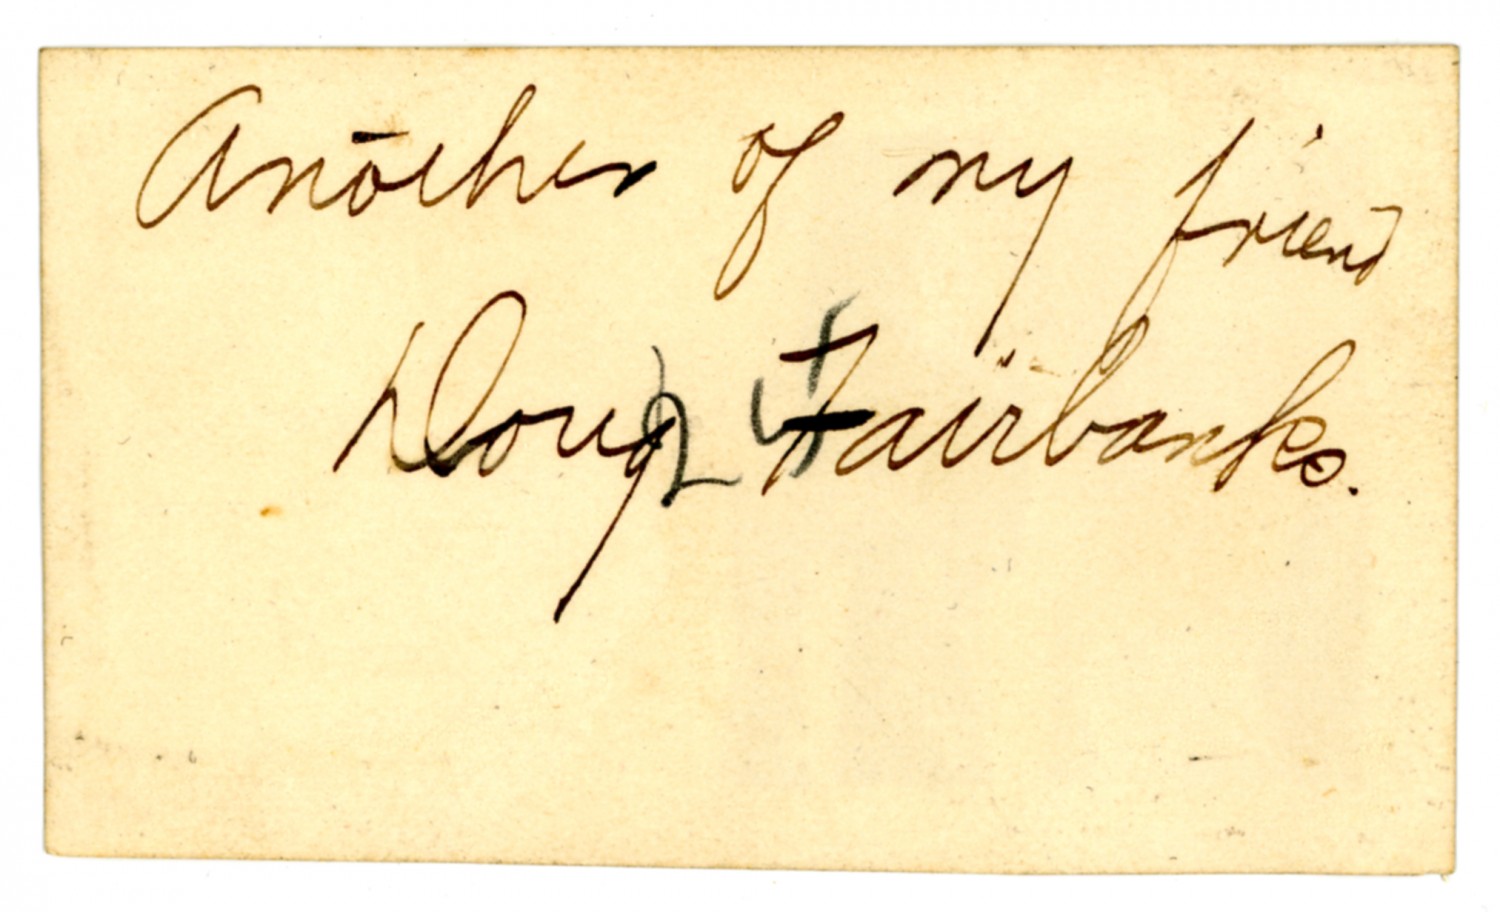 Another of my friend
Doug Fairbanks.
24